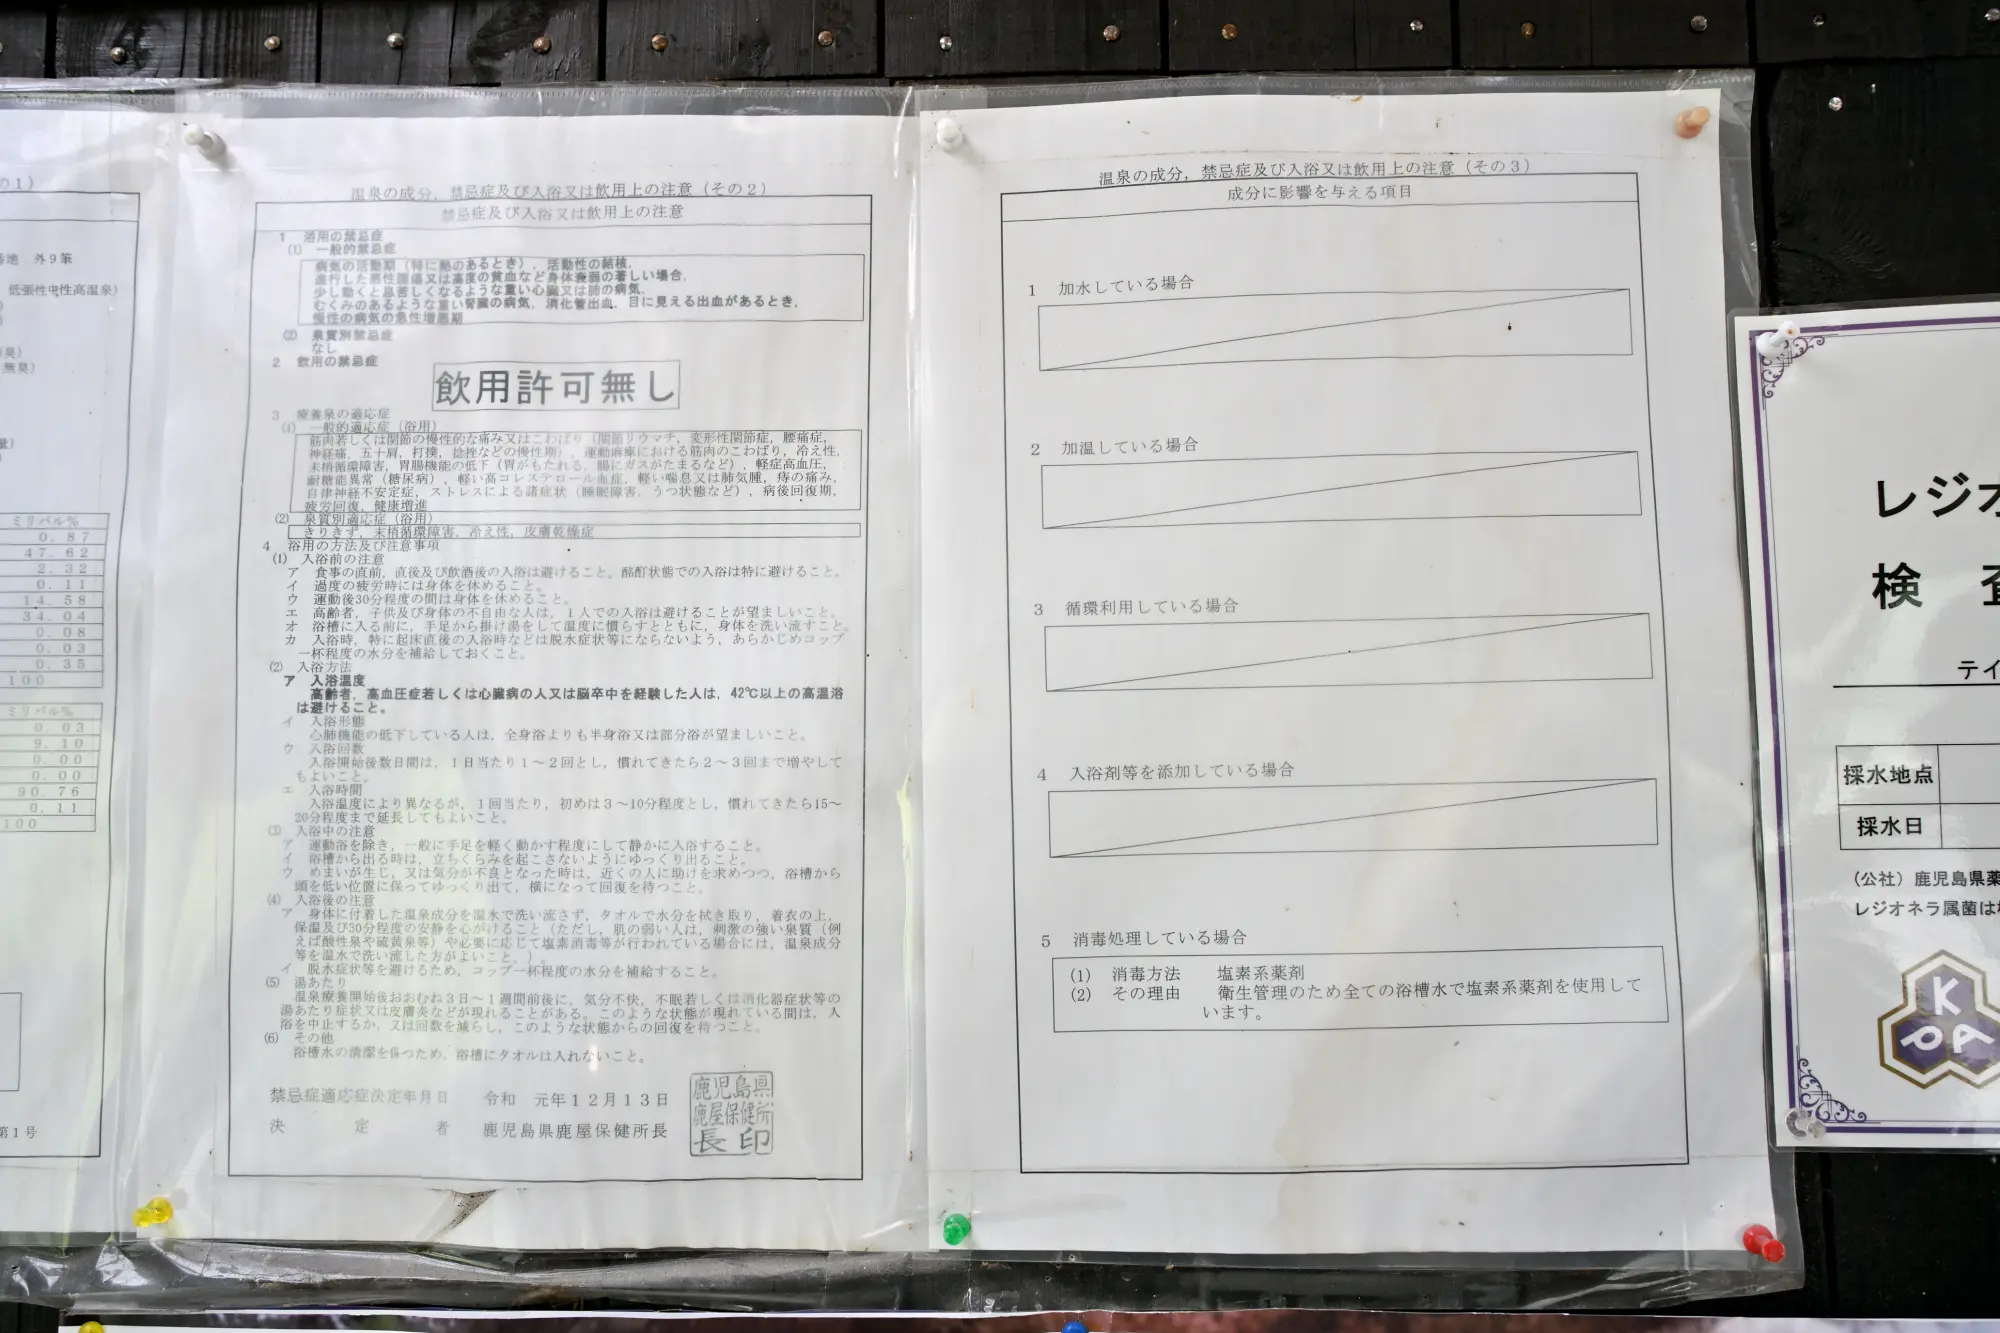 の1)
番地 外9筆
低張性中性高温泉)
臭)
無臭)
量)
ミリバル%
0.87
47.62
2.32
0.11
14.58
34.04
0.08
0.03
0.35
100
ミリバル%
0.03
9.10
0.00
0.00
90.76
0.11
100
第1号
温泉の成分，禁忌症及び入浴又は飲用上の注意（その2）
禁忌症及び入浴又は飲用上の注意
1 浴用の禁忌症
(1) 一般的禁忌症
病気の活動期（特に熱のあるとき），活動性の結核，
進行した悪性腫瘍又は高度の貧血など身体衰弱の著しい場合，
少し動くと息苦しくなるような重い心臓又は肺の病気，
むくみのあるような重い腎臓の病気，消化管出血，目に見える出血があるとき，
慢性の病気の急性増悪期
(2) 泉質別禁忌症
なし
2 飲用の禁忌症
飲用許可無し
3 療養泉の適応症
(1) 一般的適応症（浴用）
筋肉若しくは関節の慢性的な痛み又はこわばり（関節リウマチ，変形性関節症，腰痛症，
神経痛，五十肩，打撲，捻挫などの慢性期），運動麻痺における筋肉のこわばり，冷え性，
末梢循環障害，胃腸機能の低下（胃がもたれる，腸にガスがたまるなど），軽症高血圧，
耐糖能異常（糖尿病），軽い高コレステロール血症，軽い喘息又は肺気腫，痔の痛み，
自律神経不安定症，ストレスによる諸症状（睡眠障害，うつ状態など），病後回復期，
疲労回復，健康増進
(2) 泉質別適応症（浴用）
きりきず，末梢循環障害，冷え性，皮膚乾燥症
4 浴用の方法及び注意事項
(1) 入浴前の注意
ア 食事の直前，直後及び飲酒後の入浴は避けること。酩酊状態での入浴は特に避けること。
イ 過度の疲労時には身体を休めること。
ウ 運動後30分程度の間は身体を休めること。
エ 高齢者，子供及び身体の不自由な人は，1人での入浴は避けることが望ましいこと。
オ 浴槽に入る前に，手足から掛け湯をして温度に慣らすとともに，身体を洗い流すこと。
カ 入浴時，特に起床直後の入浴時などは脱水症状等にならないよう，あらかじめコップ
一杯程度の水分を補給しておくこと。
(2) 入浴方法
ア 入浴温度
高齢者，高血圧症若しくは心臓病の人又は脳卒中を経験した人は，42℃以上の高温浴
は避けること。
イ 入浴形態
心肺機能の低下している人は，全身浴よりも半身浴又は部分浴が望ましいこと。
ウ 入浴回数
入浴開始後数日間は，1日当たり1～2回とし，慣れてきたら2～3回まで増やして
もよいこと。
エ 入浴時間
入浴温度により異なるが，1回当たり，初めは3～10分程度とし，慣れてきたら15～
20分程度まで延長してもよいこと。
(3) 入浴中の注意
ア 運動浴を除き，一般に手足を軽く動かす程度にして静かに入浴すること。
イ 浴槽から出る時は，立ちくらみを起こさないようにゆっくり出ること。
ウ めまいが生じ，又は気分が不良となった時は，近くの人に助けを求めつつ，浴槽から
頭を低い位置に保ってゆっくり出て，横になって回復を待つこと。
(4) 入浴後の注意
ア 身体に付着した温泉成分を温水で洗い流さず，タオルで水分を拭き取り，着衣の上，
保温及び30分程度の安静を心がけること（ただし，肌の弱い人は，刺激の強い泉質（例
えば酸性泉や硫黄泉等）や必要に応じて塩素消毒等が行われている場合には，温泉成分
等を温水で洗い流した方がよいこと。）。
イ 脱水症状等を避けるため，コップ一杯程度の水分を補給すること。
(5) 湯あたり
温泉療養開始後おおむね3日～1週間前後に，気分不快，不眠若しくは消化器症状等の
湯あたり症状又は皮膚炎などが現れることがある。このような状態が現れている間は，入
浴を中止するか，又は回数を減らし，このような状態からの回復を待つこと。
(6) その他
浴槽水の清潔を保つため，浴槽にタオルは入れないこと。
禁忌症適応症決定年月日 令和 元年12月13日
決定者 鹿児島県鹿屋保健所長
鹿児島県
鹿屋保健所
長印
温泉の成分，禁忌症及び入浴又は飲用上の注意（その3）
成分に影響を与える項目
1 加水している場合
2 加温している場合
3 循環利用している場合
4 入浴剤等を添加している場合
5 消毒処理している場合
(1) 消毒方法 塩素系薬剤
(2) その理由 衛生管理のため全ての浴槽水で塩素系薬剤を使用して
います。
レジオ
検
テイ
採水地点
採水日
（公社）鹿児島県薬
レジオネラ属菌は
K
P A